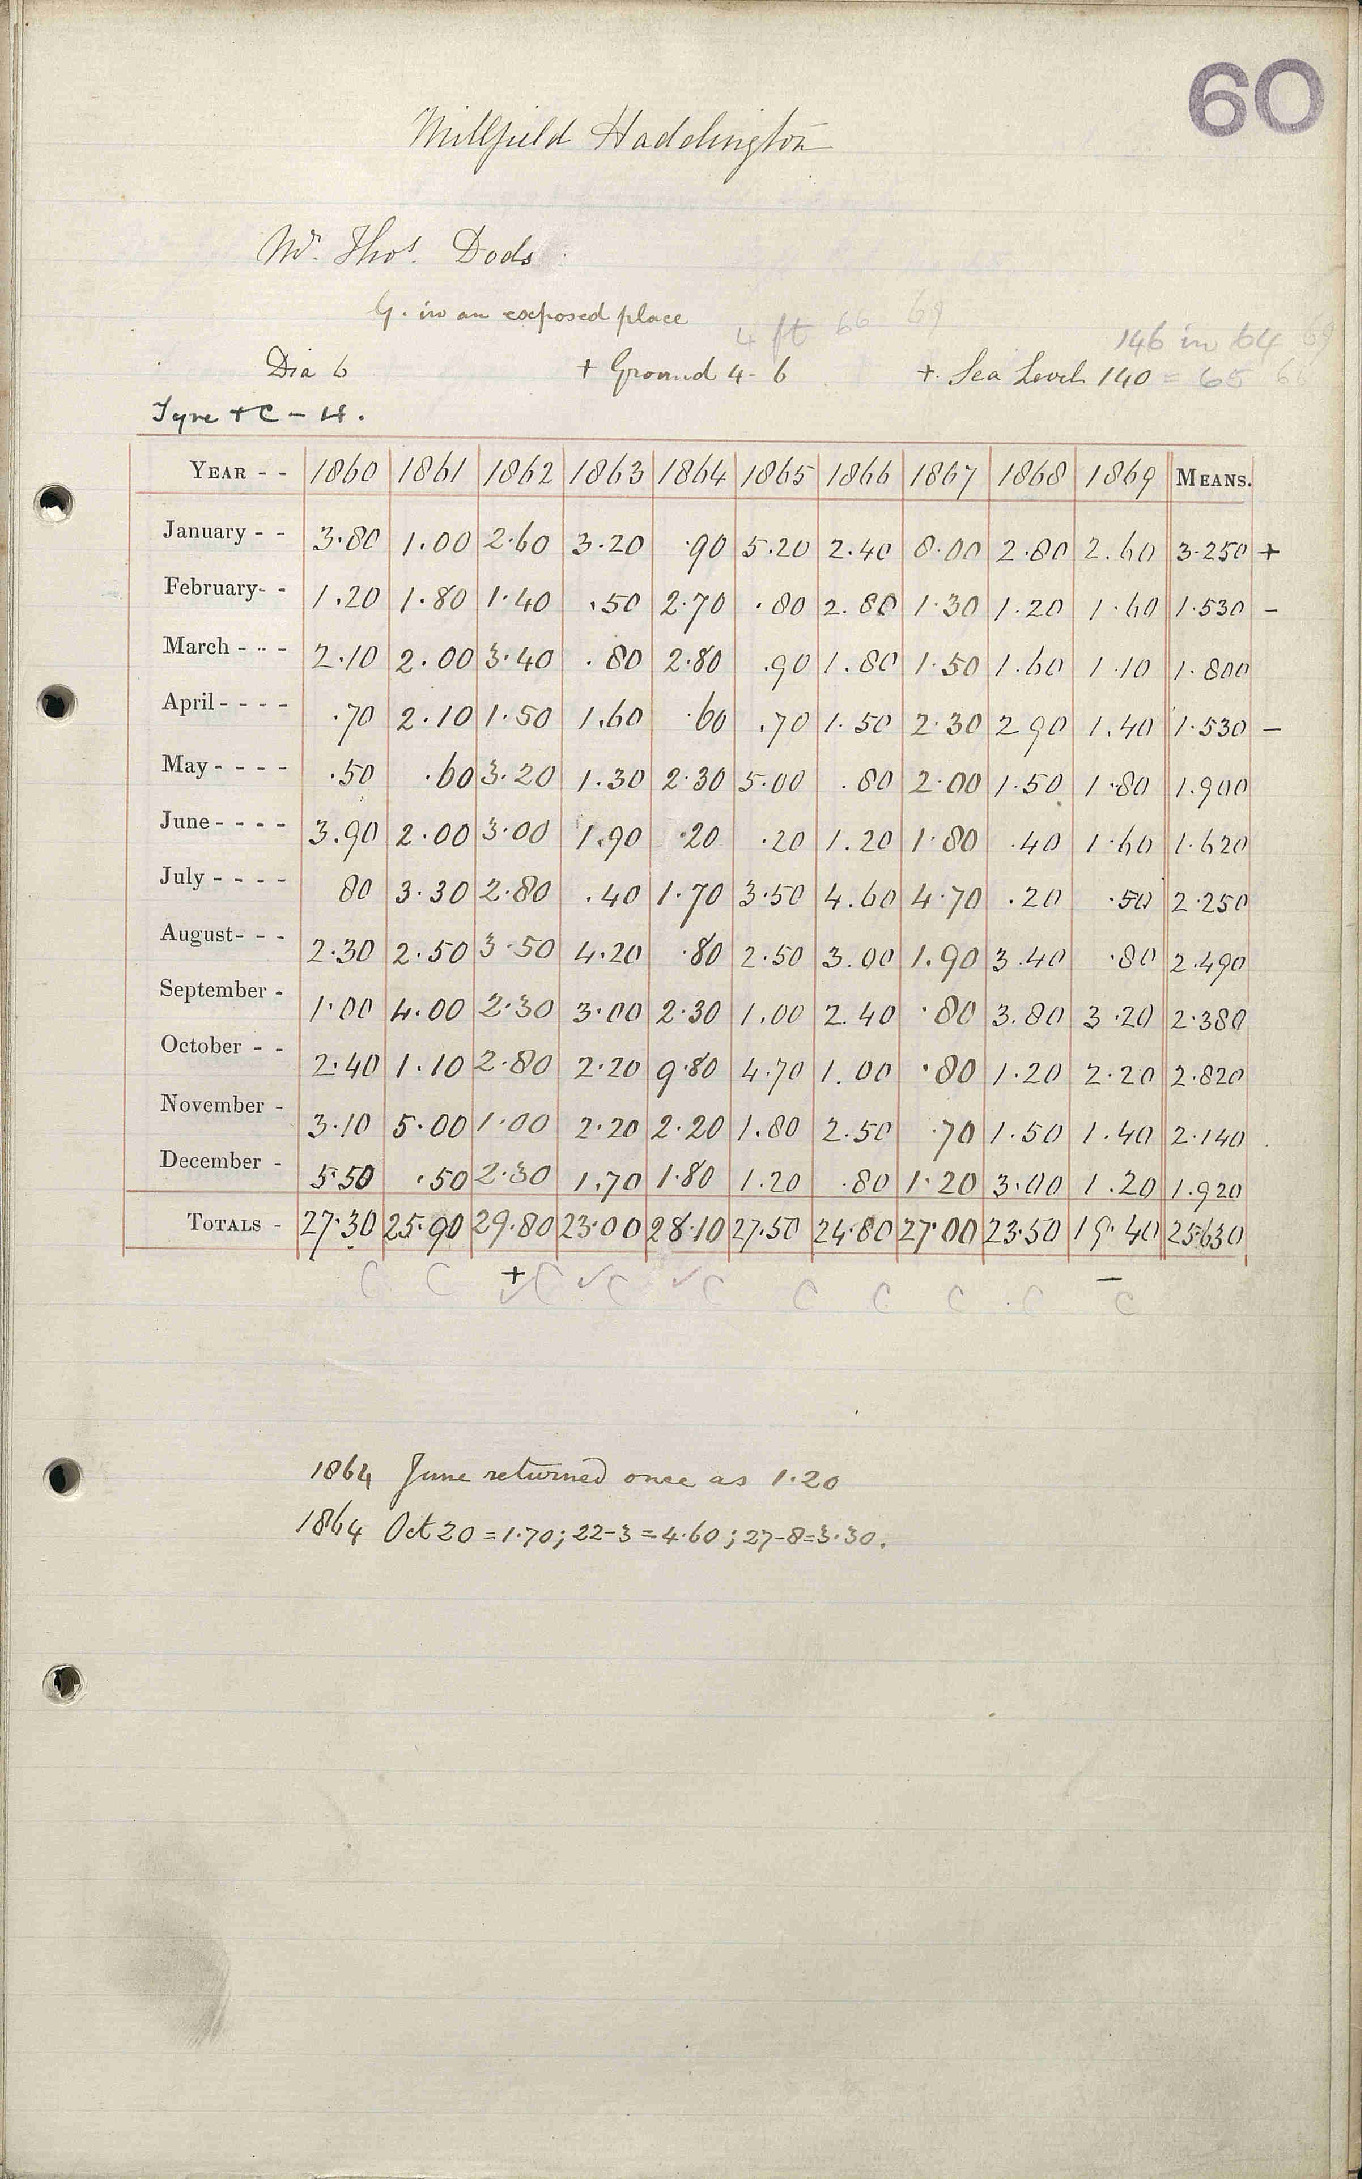 60
Millfield Haddington
Mr. Thos. Dods
G. in an exposed place
4 ft 66 69
146 in 64 69
Dia 6 + Ground 4-6 + Sea Level 140 = 65 66
Tyne + C - H.
YEAR - - 1860 1861 1862 1863 1864 1865 1866 1867 1868 1869 MEANS.
January - - 3.80 1.00 2.60 3.20 .90 5.20 2.40 8.00 2.80 2.60 3.250 +
February- - 1.20 1.80 1.40 .50 2.70 .80 2.80 1.30 1.20 1.60 1.530 -
March - - - 2.10 2.00 3.40 .80 2.80 .90 1.80 1.50 1.60 1.10 1.800
April - - - - .70 2.10 1.50 1.60 .60 .70 1.50 2.30 2.90 1.40 1.530 -
May - - - - .50 .60 3.20 1.30 2.30 5.00 .80 2.00 1.50 1.80 1.900
June - - - - 3.90 2.00 3.00 1.90 .20 .20 1.20 1.80 .40 1.60 1.620
July - - - - 80 3.30 2.80 .40 1.70 3.50 4.60 4.70 .20 .50 2.250
August- - - 2.30 2.50 3.50 4.20 .80 2.50 3.00 1.90 3.40 .80 2.490
September - 1.00 4.00 2.30 3.00 2.30 1.00 2.40 .80 3.80 3.20 2.380
October - - 2.40 1.10 2.80 2.20 9.80 4.70 1.00 .80 1.20 2.20 2.820
November - 3.10 5.00 1.00 2.20 2.20 1.80 2.50 .70 1.50 1.40 2.140
December - 5.50 .50 2.30 1.70 1.80 1.20 .80 1.20 3.00 1.20 1.920
TOTALS - 27.30 25.90 29.80 23.00 28.10 27.50 24.80 27.00 23.50 19.40 25.630
C C + ✓C ✓C ✓C C C C C - C
1864 June returned once as 1.20
1864 Oct 20 = 1.70; 22-3 = 4.60; 27-8 = 3.30.